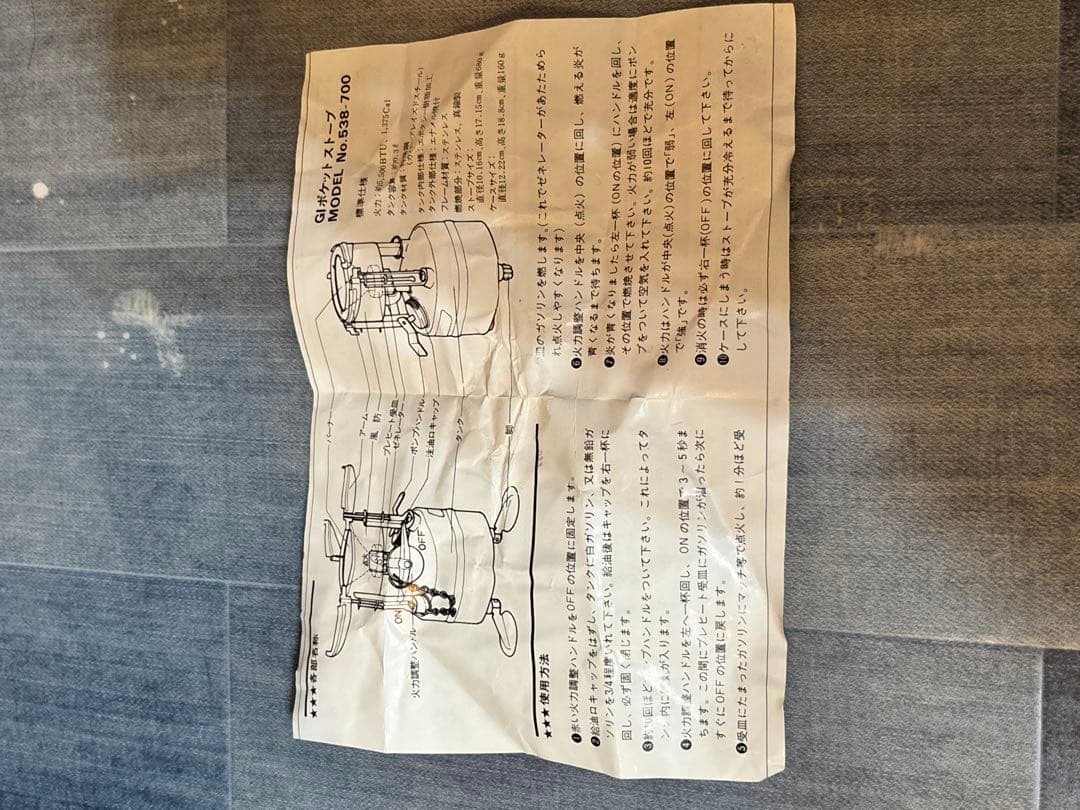 GIポケットストーブ
MODEL No.538-700
標準仕様
火力：約5,500BTU、1,375Cal
タンク容量：約0.3ℓ
タンク材質：
タンク内部仕様：エポキシー樹脂加工
タンク外部仕様：エナメル焼付
フレーム材質：ステンレス
燃焼部分：ステンレス、真鍮製
ストーブサイズ：
直径10.16cm、高さ17.15cm、重量686g
ケースサイズ：
直径12.22cm、高さ18.8cm、重量160g
★★★各部名称
バーナー
アーム
風防
プレヒート受皿
ゼネレーター
ポンプハンドル
注油口キャップ
タンク
脚
ON
OFF
火力調整ハンドル
★★★使用方法
❶赤い火力調整ハンドルをOFFの位置に固定します。
❷給油口キャップをはずし、タンクに白ガソリン、又は無鉛ガ
ソリンを3/4程度いれて下さい。給油後はキャップを右一杯に
回し、必ず固く閉じます。
❸約 回ほど プハンドルをついて下さい。これによってタ
ンク内に が入ります。
❹火力調整ハンドルを左へ一杯回し、ONの位置で3〜5秒ま
ちます。この間にプレヒート受皿にガソリンが溜ったら次に
すぐにOFFの位置に戻します。
❺受皿にたまったガソリンにマッチ等で点火し、約1分ほど受
皿のガソリンを燃します。(これでゼネレーターがあたためら
れ点火しやすくなります)
❻火力調整ハンドルを中央（点火）の位置に回し、燃える炎が
青くなるまで待ちます。
❼炎が青くなりましたら左一杯（ONの位置）にハンドルを回し、
その位置で燃焼させて下さい。火力が弱い場合は適度にポン
プをついて空気を入れて下さい。約10回ほどで充分です。
❽火力はハンドルが中央(点火)の位置で「弱」、左(ON)の位置
で「強」です。
❾消火の時は必ず右一杯(OFF)の位置に回して下さい。
❿ケースにしまう時はストーブが充分冷えるまで待ってからに
して下さい。